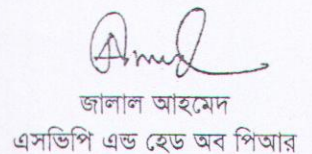 জালাল আহমেদ
এসভিপি এন্ড হেড অব পিআর